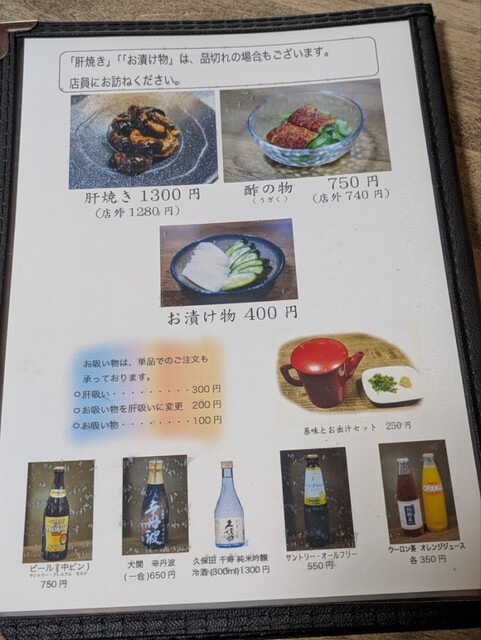 「肝焼き」「お漬け物」は、品切れの場合もございます。
店員にお訪ねください。
肝焼き 1300 円
（店外 1280 円）
酢の物 750 円
（うざく） （店外 740 円）
お漬け物 400 円
お吸い物は、単品でのご注文も
承っております。
○肝吸い・・・・・・・・・300円
○お吸い物を肝吸いに変更 200円
○お吸い物・・・・・・・・100円
薬味とお出汁セット 250 円
ビール(中ビン)
サントリー・プレミアム・モルツ
750 円
大関 辛丹波
(一合) 650 円
久保田 千寿 純米吟醸
冷酒(300ml)1300 円
サントリー・オールフリー
550 円
ウーロン茶 オレンジジュース
各 350 円
辛丹波
久保田
ORANGE